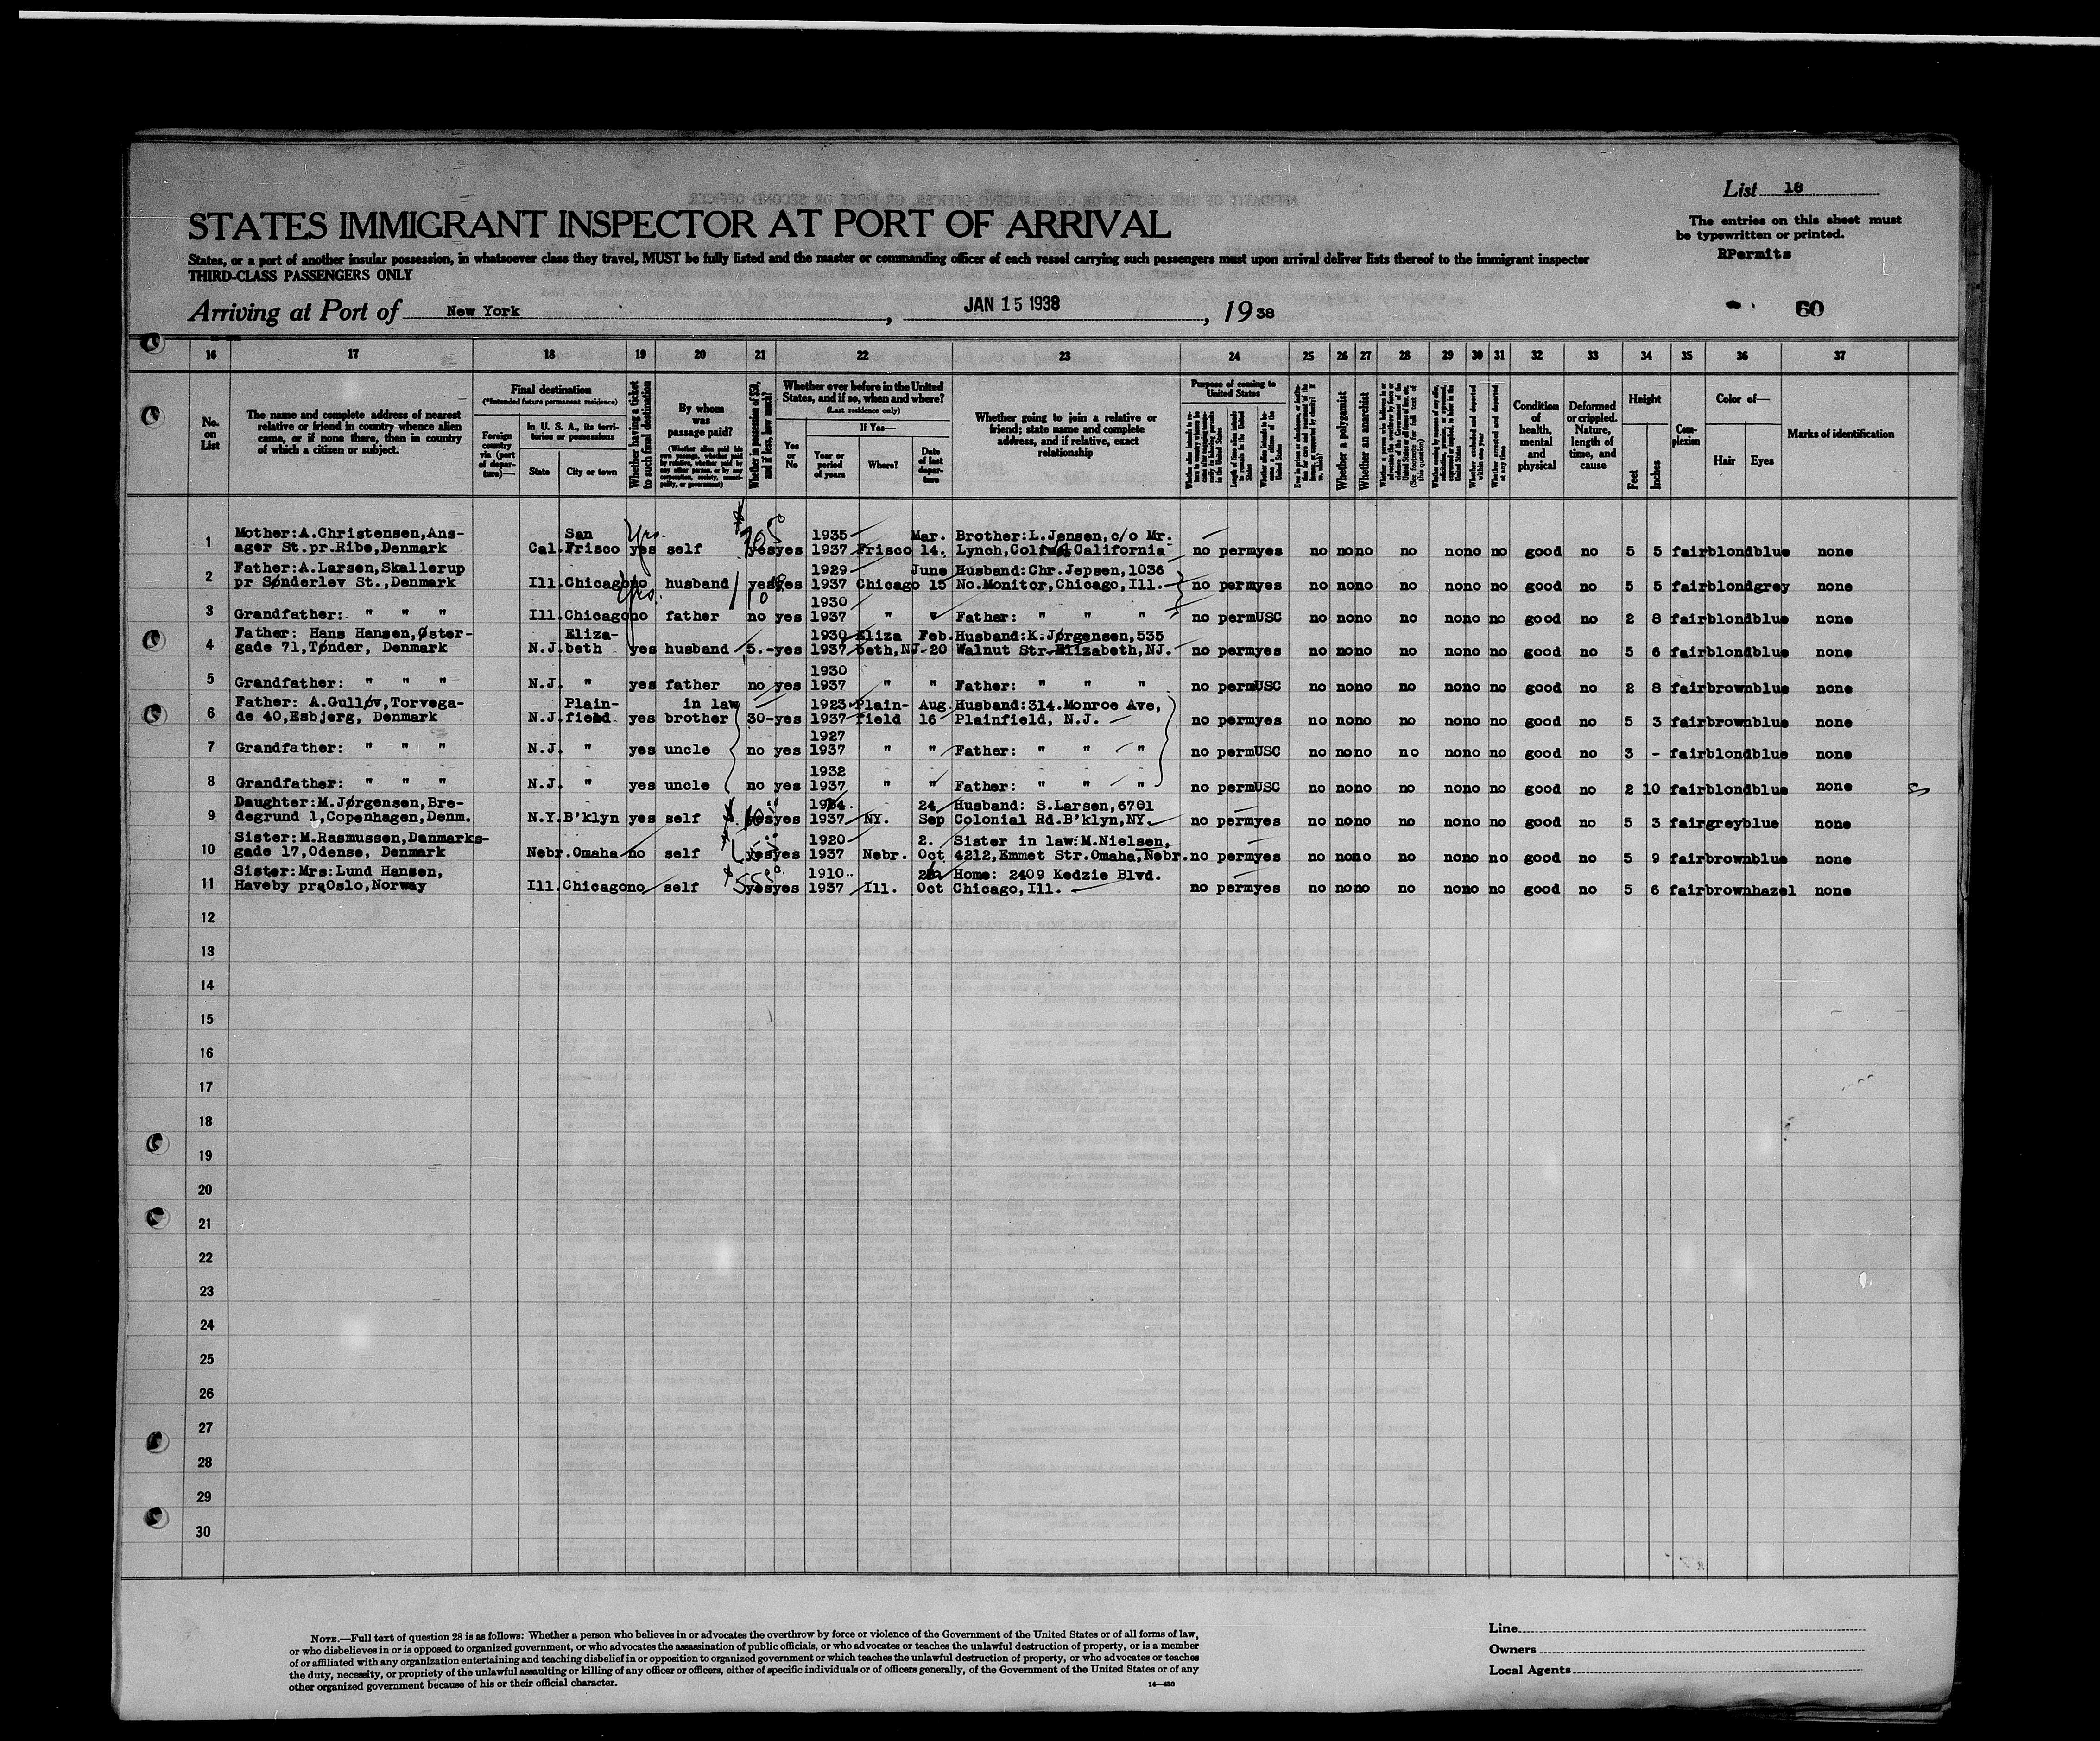 List 18
STATES IMMIGRANT INSPECTOR AT PORT OF ARRIVAL
The entries on this sheet must
be typewritten or printed.
RPermits
States, or a port of another insular possession, in whatsoever class they travel, MUST be fully listed and the master or commanding officer of each vessel carrying such passengers must upon arrival deliver lists thereof to the immigrant inspector
THIRD-CLASS PASSENGERS ONLY
Arriving at Port of New York, JAN 15 1938, 1938
60
16 17 18 19 20 21 22 23 24 25 26 27 28 29 30 31 32 33 34 35 36 37
No. on List
The name and complete address of nearest
relative or friend in country whence alien
came, or if none there, then in country
of which a citizen or subject.
Final destination
(*Intended future permanent residence)
Foreign country via (port of departure)—
In U. S. A., its territories or possessions
State
City or town
Whether having a ticket to such final destination
By whom was passage paid?
(Whether alien paid his own passage, whether paid by relative, whether paid by any other person, or by any corporation, society, municipality, or government)
Whether in possession of $50, and if less, how much?
Whether ever before in the United
States, and if so, when and where?
(Last residence only)
Yes or No
If Yes—
Year or period of years
Where?
Date of last departure
Whether going to join a relative or
friend; state name and complete
address, and if relative, exact
relationship
Purpose of coming to United States
Whether a polygamist
Whether an anarchist
Condition of health, mental and physical
Deformed or crippled. Nature, length of time, and cause
Height
Feet
Inches
Complexion
Color of—
Hair
Eyes
Marks of identification
Mother:A.Christensen,Ans- San yrs. 1935 Mar. Brother:L.Jensen,c/o Mr.
1 ager St.pr.Ribe,Denmark Cal. Frisco yes self yes yes 1937 Frisco 14. Lynch, California no perm yes no no no no no no no good no 5 5 fair blond blue none
Father:A.Larsen,Skallerup 1929 June Husband:Chr.Jepsen,1036
2 pr Sønderlev St.,Denmark Ill. Chicago no husband yes yes 1937 Chicago 15 No.Monitor,Chicago,Ill. no perm yes no no no no no no no good no 5 5 fair blond grey none
1930
3 Grandfather: " " " Ill. Chicago no father no yes 1937 " " Father: " " " no perm USC no no no no no no no good no 2 8 fair blond blue none
Father: Hans Hansen,Øster- Eliza- 1930 Eliza Feb. Husband:K.Jørgensen,535
4 gade 71,Tønder, Denmark N.J. beth yes husband 5.- yes 1937 beth,NJ 20 Walnut Str.Elizabeth,NJ. no perm yes no no no no no no no good no 5 6 fair blond blue none
1930
5 Grandfather: " " " N.J. " yes father no yes 1937 " " Father: " " " no perm USC no no no no no no no good no 2 8 fair brown blue none
Father: A.Gulløv,Torvega- Plain- in law 1923 Plain- Aug. Husband:314.Monroe Ave,
6 de 40,Esbjerg, Denmark N.J. field. yes brother 30- yes 1937 field 16 Plainfield, N.J. no perm yes no no no no no no no good no 5 3 fair brown blue none
1927
7 Grandfather: " " " N.J. " yes uncle no yes 1937 " " Father: " " " no perm USC no no no no no no no good no 3 - fair blond blue none
1932
8 Grandfather: " " " N.J. " yes uncle no yes 1937 " " Father: " " " no perm USC no no no no no no no good no 2 10 fair blond blue none
Daughter:M.Jørgensen,Bre- 24 Husband: S.Larsen,6701
9 degrund 1,Copenhagen,Denm. N.Y. B'klyn yes self yes yes 1937 NY. Sep Colonial Rd.B'klyn,NY. no perm yes no no no no no no no good no 5 3 fair grey blue none
Sister:M.Rasmussen,Danmarks- 1920 2. Sister in law:M.Nielsen,
10 gade 17,Odense, Denmark Nebr. Omaha no self yes yes 1937 Nebr. Oct 4212,Emmet Str.Omaha,Nebr. no perm yes no no no no no no no good no 5 9 fair brown blue none
Sister:Mrs:Lund Hansen, 1910 Home: 2409 Kedzie Blvd.
11 Haveby pr Oslo,Norway Ill. Chicago no self yes yes 1937 Ill. Oct Chicago,Ill. no perm yes no no no no no no no good no 5 6 fair brown hazel none
12
13
14
15
16
17
18
19
20
21
22
23
24
25
26
27
28
29
30
NOTE.—Full text of question 28 is as follows: Whether a person who believes in or advocates the overthrow by force or violence of the Government of the United States or of all forms of law,
or who disbelieves in or is opposed to organized government, or who advocates the assassination of public officials, or who advocates or teaches the unlawful destruction of property, or is a member
of or affiliated with any organization entertaining and teaching disbelief in or opposition to organized government or which teaches the unlawful destruction of property, or who advocates or teaches
the duty, necessity, or propriety of the unlawful assaulting or killing of any officer or officers, either of specific individuals or of officers generally, of the Government of the United States or of any
other organized government because of his or their official character.
14—430
Line
Owners
Local Agents